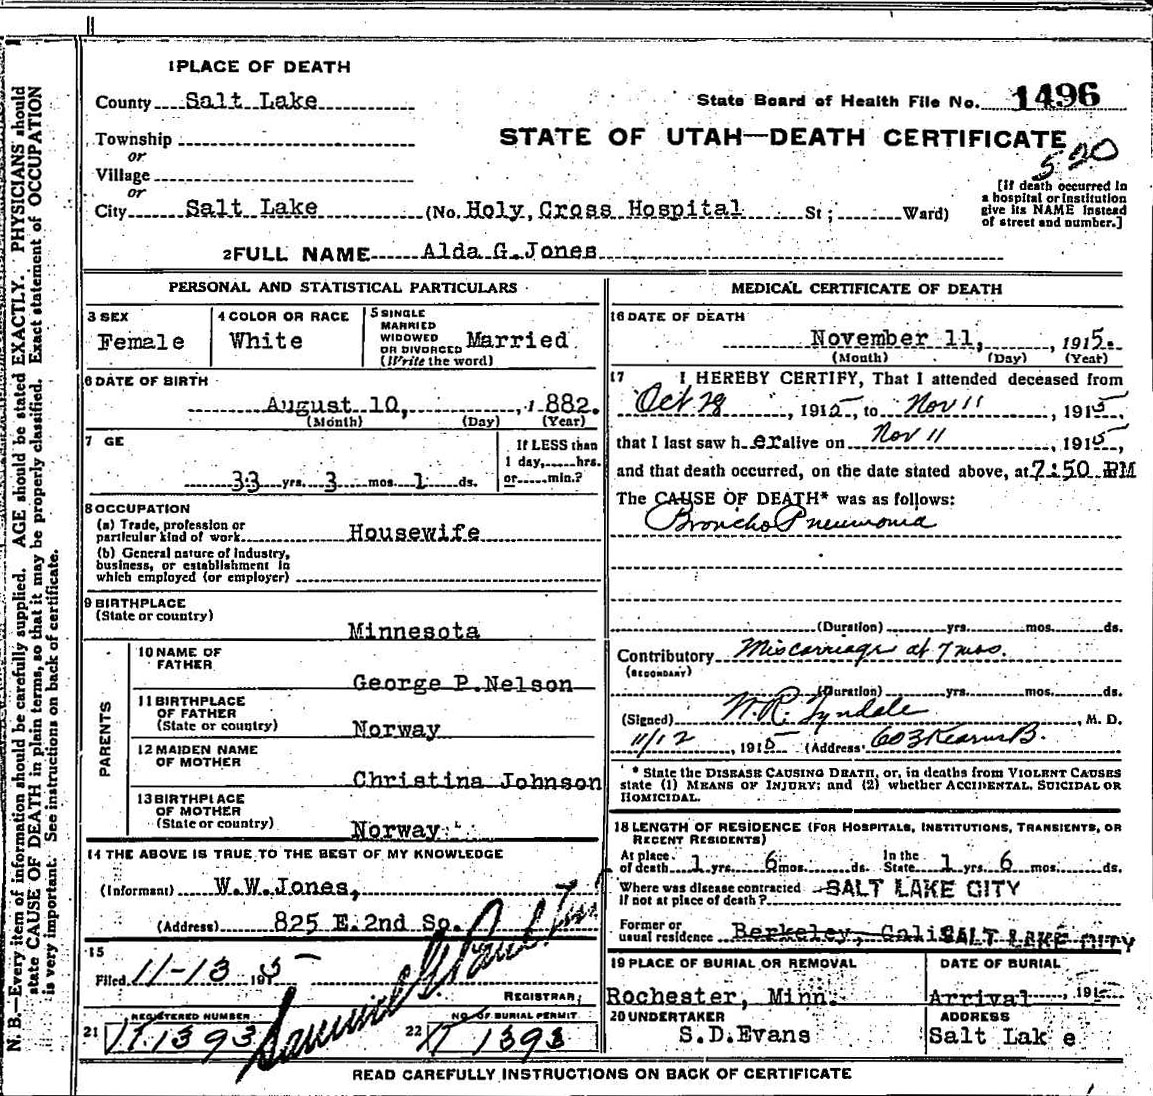 1 PLACE OF DEATH
County Salt Lake
State Board of Health File No. 1496
Township
or
Village
or
STATE OF UTAH—DEATH CERTIFICATE
520
City Salt Lake (No. Holy, Cross Hospital St; Ward)
[If death occurred in
a hospital or institution
give its NAME instead
of street and number.]
2 FULL NAME Alda G. Jones
PERSONAL AND STATISTICAL PARTICULARS
3 SEX
Female
4 COLOR OR RACE
White
5 SINGLE
MARRIED
WIDOWED
OR DIVORCED
(Write the word)
Married
6 DATE OF BIRTH
August 10, 1882.
(Month) (Day) (Year)
7 GE
33 yrs. 3 mos. 1 ds.
If LESS than
1 day, hrs.
or min.?
8 OCCUPATION
(a) Trade, profession or
particular kind of work Housewife
(b) General nature of industry,
business, or establishment in
which employed (or employer)
9 BIRTHPLACE
(State or country)
Minnesota
PARENTS
10 NAME OF
FATHER
George P. Nelson
11 BIRTHPLACE
OF FATHER
(State or country)
Norway
12 MAIDEN NAME
OF MOTHER
Christina Johnson
13 BIRTHPLACE
OF MOTHER
(State or country)
Norway
14 THE ABOVE IS TRUE TO THE BEST OF MY KNOWLEDGE
(Informant) W.W. Jones,
(Address) 825 E. 2nd So.
15
Filed 11-13 1915
REGISTRAR
21 REGISTERED NUMBER
1393
22 NO. OF BURIAL PERMIT
1393
MEDICAL CERTIFICATE OF DEATH
16 DATE OF DEATH
November 11, , 1915.
(Month) (Day) (Year)
17 I HEREBY CERTIFY, That I attended deceased from
Oct 28 , 1915, to Nov 11 , 1915,
that I last saw her alive on Nov 11 , 1915,
and that death occurred, on the date stated above, at 7:50 PM
The CAUSE OF DEATH* was as follows:
Broncho Pneumonia
(Duration) yrs. mos. ds.
Contributory Miscarriage at 7 mos.
(SECONDARY)
(Duration) yrs. mos. ds.
(Signed) Tyndale , M. D.
11/12 , 1915 (Address 603 Kearns B.
* State the DISEASE CAUSING DEATH, or, in deaths from VIOLENT CAUSES
state (1) MEANS OF INJURY; and (2) whether ACCIDENTAL, SUICIDAL OR
HOMICIDAL.
18 LENGTH OF RESIDENCE (FOR HOSPITALS, INSTITUTIONS, TRANSIENTS, OR
RECENT RESIDENTS)
At place
of death 1 yrs. 6 mos. ds. In the
State 1 yrs 6 mos. ds.
Where was disease contracted
if not at place of death? SALT LAKE CITY
Former or
usual residence Berkeley, Cali SALT LAKE CITY
19 PLACE OF BURIAL OR REMOVAL
Rochester, Minn.
DATE OF BURIAL
Arrival , 191
20 UNDERTAKER
S.D. Evans
ADDRESS
Salt Lake
READ CAREFULLY INSTRUCTIONS ON BACK OF CERTIFICATE
N. B.—Every item of information should be carefully supplied. AGE should be stated EXACTLY. PHYSICIANS should
state CAUSE OF DEATH in plain terms, so that it may be properly classified. Exact statement of OCCUPATION
is very important. See instructions on back of certificate.